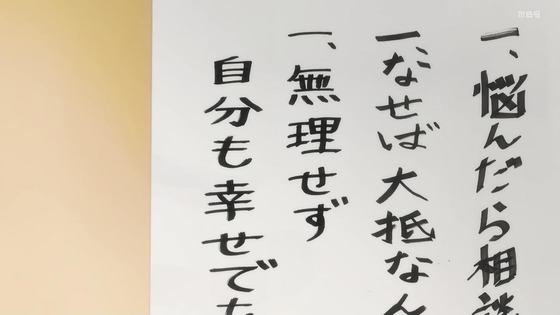 一、悩んだら相談
一、なせば大抵なん
一、無理せず
自分も幸せで